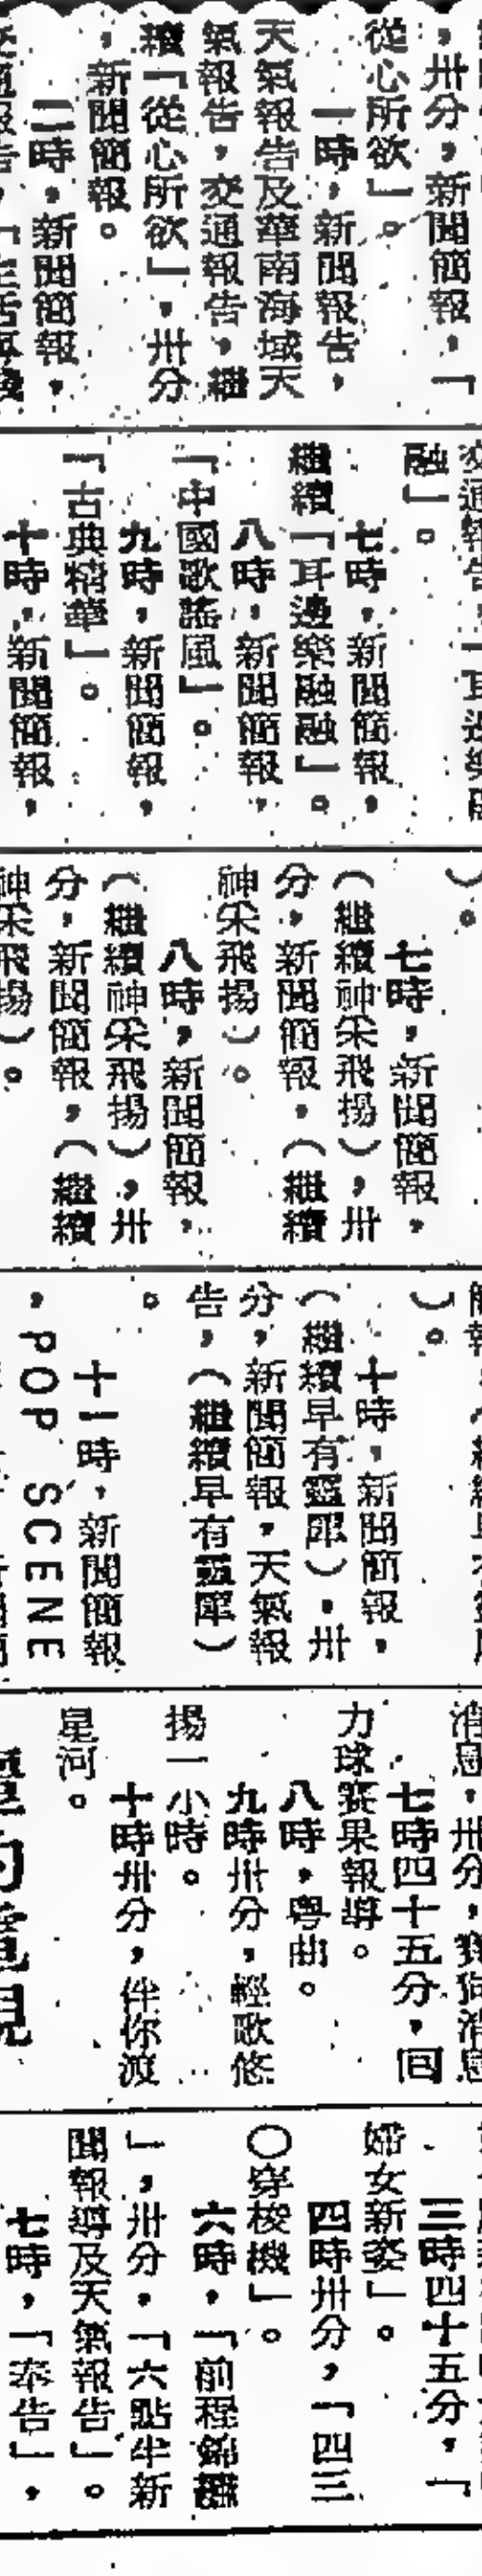 ，卅分，新聞簡報，「
從心所欲」。
一時，新聞報告，
天氣報告及華南海域天
氣報告，交通報告，繼
續「從心所欲」，卅分
，新聞簡報。
二時，新聞簡報，
交通報告，「生活
交通報告，「耳邊樂
融」。
七時，新聞簡報，
繼續「耳邊樂融融」。
八時，新聞簡報，
「中國歌謠風」。
九時，新聞簡報，
「古典精華」。
十時，新聞簡報，
）。
七時，新聞簡報，
（繼續神采飛揚），卅
分，新聞簡報，（繼續
神采飛揚）。
八時，新聞簡報，
（繼續神采飛揚），卅
分，新聞簡報，（繼續
神采飛揚）。
）。
十時，新聞簡報，
（繼續早有靈犀），卅
分，新聞簡報，天氣報
告，（繼續早有靈犀）
。
十一時，新聞簡報
，POP SCENE
消息，卅分，賽狗消息
七時四十五分，回
力球賽果報導。
八時，粵曲。
九時卅分，輕歌悠
揚一小時。
十時卅分，伴你渡
星河。
三時四十五分，「
婦女新姿」。
四時卅分，「四三
〇穿梭機」。
六時，「前程錦繡
」，卅分，「六點半新
聞報導及天氣報告」。
七時，「奉告」，